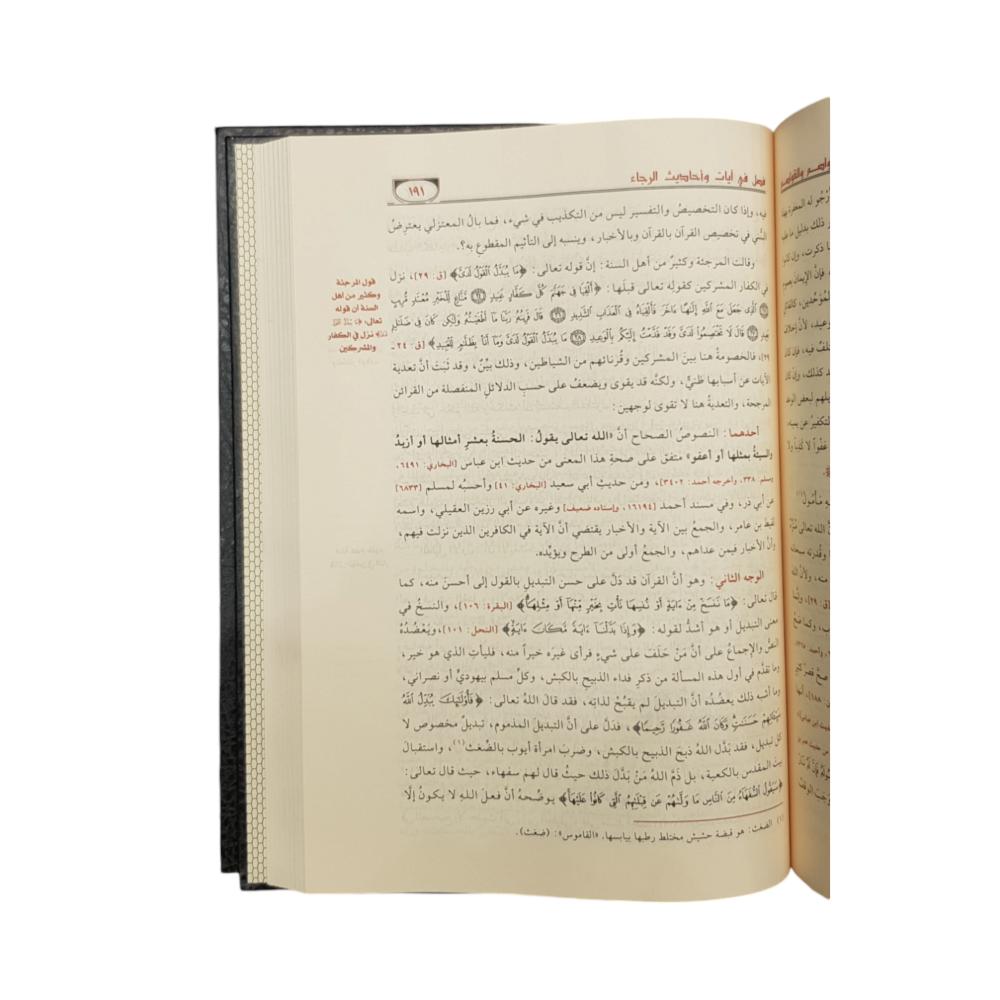 فصل في آيات وأحاديث الرجاء
١٩١
فيه، وإذا كان التخصيصُ والتفسير ليس من التكذيب في شيء، فما بالُ المعتزلي يعترِضُ
السُّني في تخصيص القرآن بالقرآن وبالأخبار، وينسبه إلى التأثيم المقطوع به؟.
وقالت المرجئة وكثيرٌ من أهل السنة: إنَّ قوله تعالى: ﴿مَا يُبَدَّلُ الْقَوْلُ لَدَيَّ﴾ [ق: ٢٩]، نزل
في الكفار المشركين كقولِه تعالى قبلَها: ﴿أَلْقِيَا فِي جَهَنَّمَ كُلَّ كَفَّارٍ عَنِيدٍ ۝ مَّنَّاعٍ لِّلْخَيْرِ مُعْتَدٍ مُّرِيبٍ
۝ الَّذِي جَعَلَ مَعَ اللَّهِ إِلَٰهًا ءَاخَرَ فَأَلْقِيَاهُ فِي الْعَذَابِ الشَّدِيدِ ۝ قَالَ قَرِينُهُ رَبَّنَا مَا أَطْغَيْتُهُ وَلَٰكِن كَانَ فِي ضَلَالٍ
بَعِيدٍ ۝ قَالَ لَا تَخْتَصِمُوا لَدَيَّ وَقَدْ قَدَّمْتُ إِلَيْكُم بِالْوَعِيدِ ۝ مَا يُبَدَّلُ الْقَوْلُ لَدَيَّ وَمَا أَنَا بِظَلَّامٍ لِّلْعَبِيدِ﴾ [ق: ٢٤ ـ
٢٩]، فالخصومةُ هنا بينَ المشركين وقُرنائهم من الشياطين، وذلك بيِّنٌ، وقد ثَبَتَ أنَّ تعدية
الآيات عن أسبابها ظنيٌّ، ولكنَّه قد يقوى ويضعفُ على حسبِ الدلائلِ المنفصلة من القرائن
المرجحة، والتعديةُ هنا لا تقوى لوجهين:
أحدهما: النصوصُ الصحاح أنَّ «الله تعالى يقولُ: الحسنةُ بعشرِ أمثالها أو أزيدُ
والسيئةُ بمثلها أو أعفو» متفق على صحةِ هذا المعنى من حديث ابن عباس [البخاري: ٦٤٩١،
ومسلم: ٣٣٨، وأخرجه أحمد: ٣٤٠٢]، ومن حديثِ أبي سعيد [البخاري: ٤١] وأحسبُه لمسلم [٦٨٣٣]
عن أبي ذر، وفي مسند أحمد [١٦١٩٤، وإسناده ضعيف] وغيره عن أبي رزين العقيلي، واسمه
لقيط بن عامر، والجمعُ بين الآية والأخبار يقتضي أنَّ الآية في الكافرين الذين نزلت فيهم،
وأنَّ الأخبارَ فيمن عداهم، والجمعُ أولى من الطرح ويؤيِّده.
الوجه الثاني: وهو أنَّ القرآن قد دَلَّ على حسن التبديل بالقول إلى أحسنَ منه، كما
قال تعالى: ﴿مَا نَنسَخْ مِنْ ءَايَةٍ أَوْ نُنسِهَا نَأْتِ بِخَيْرٍ مِّنْهَا أَوْ مِثْلِهَا﴾ [البقرة: ١٠٦]، والنسخ في
معنى التبديل أو هو أشدُّ لقوله: ﴿وَإِذَا بَدَّلْنَا ءَايَةً مَّكَانَ ءَايَةٍ﴾ [النحل: ١٠١]، ويَعْضُدُهُ
النصُّ والإجماعُ على أنَّ مَنْ حَلَفَ على شيءٍ فرأى غيرَه خيراً منه، فليأتِ الذي هو خير،
وما تقدَّم في أول هذه المسألة من ذكرِ فداء الذبيح بالكبش، وكلِّ مسلم بيهوديٍّ أو نصراني،
وما أشبه ذلك يعضُدُه أنَّ التبديلَ لم يقبُحْ لذاتِه، فقد قالَ اللهُ تعالى: ﴿فَأُوْلَٰئِكَ يُبَدِّلُ اللَّهُ
سَيِّئَاتِهِمْ حَسَنَاتٍ وَكَانَ اللَّهُ غَفُورًا رَّحِيمًا﴾، فدلَّ على أنَّ التبديلَ المذمومَ، تبديلٌ مخصوص لا
كل تبديل، فقد بَدَّل اللهُ ذبحَ الذبيح بالكبش، وضربَ امرأة أيوب بالضِّغث(١)، واستقبالَ
بيت المقدس بالكعبة، بل ذَمَّ اللهُ مَنْ بَدَّلَ ذلك حيثُ قال لهم سفهاء، حيث قال تعالى:
﴿سَيَقُولُ السُّفَهَاءُ مِنَ النَّاسِ مَا وَلَّاهُمْ عَن قِبْلَتِهِمُ الَّتِي كَانُوا عَلَيْهَا﴾ يوضّحهُ أنَّ فعلَ اللهِ لا يكونُ إلَّا
(١) الضغث: هو قبضة حشيش مختلط رطبها بيابسها. «القاموس»: (ضغث).
قول المرجئة
وكثير من أهل
السنة أن قوله
تعالى: ﴿مَا يُبَدَّلُ الْقَوْلُ
لَدَيَّ﴾ نزل في الكفار
والمشركين